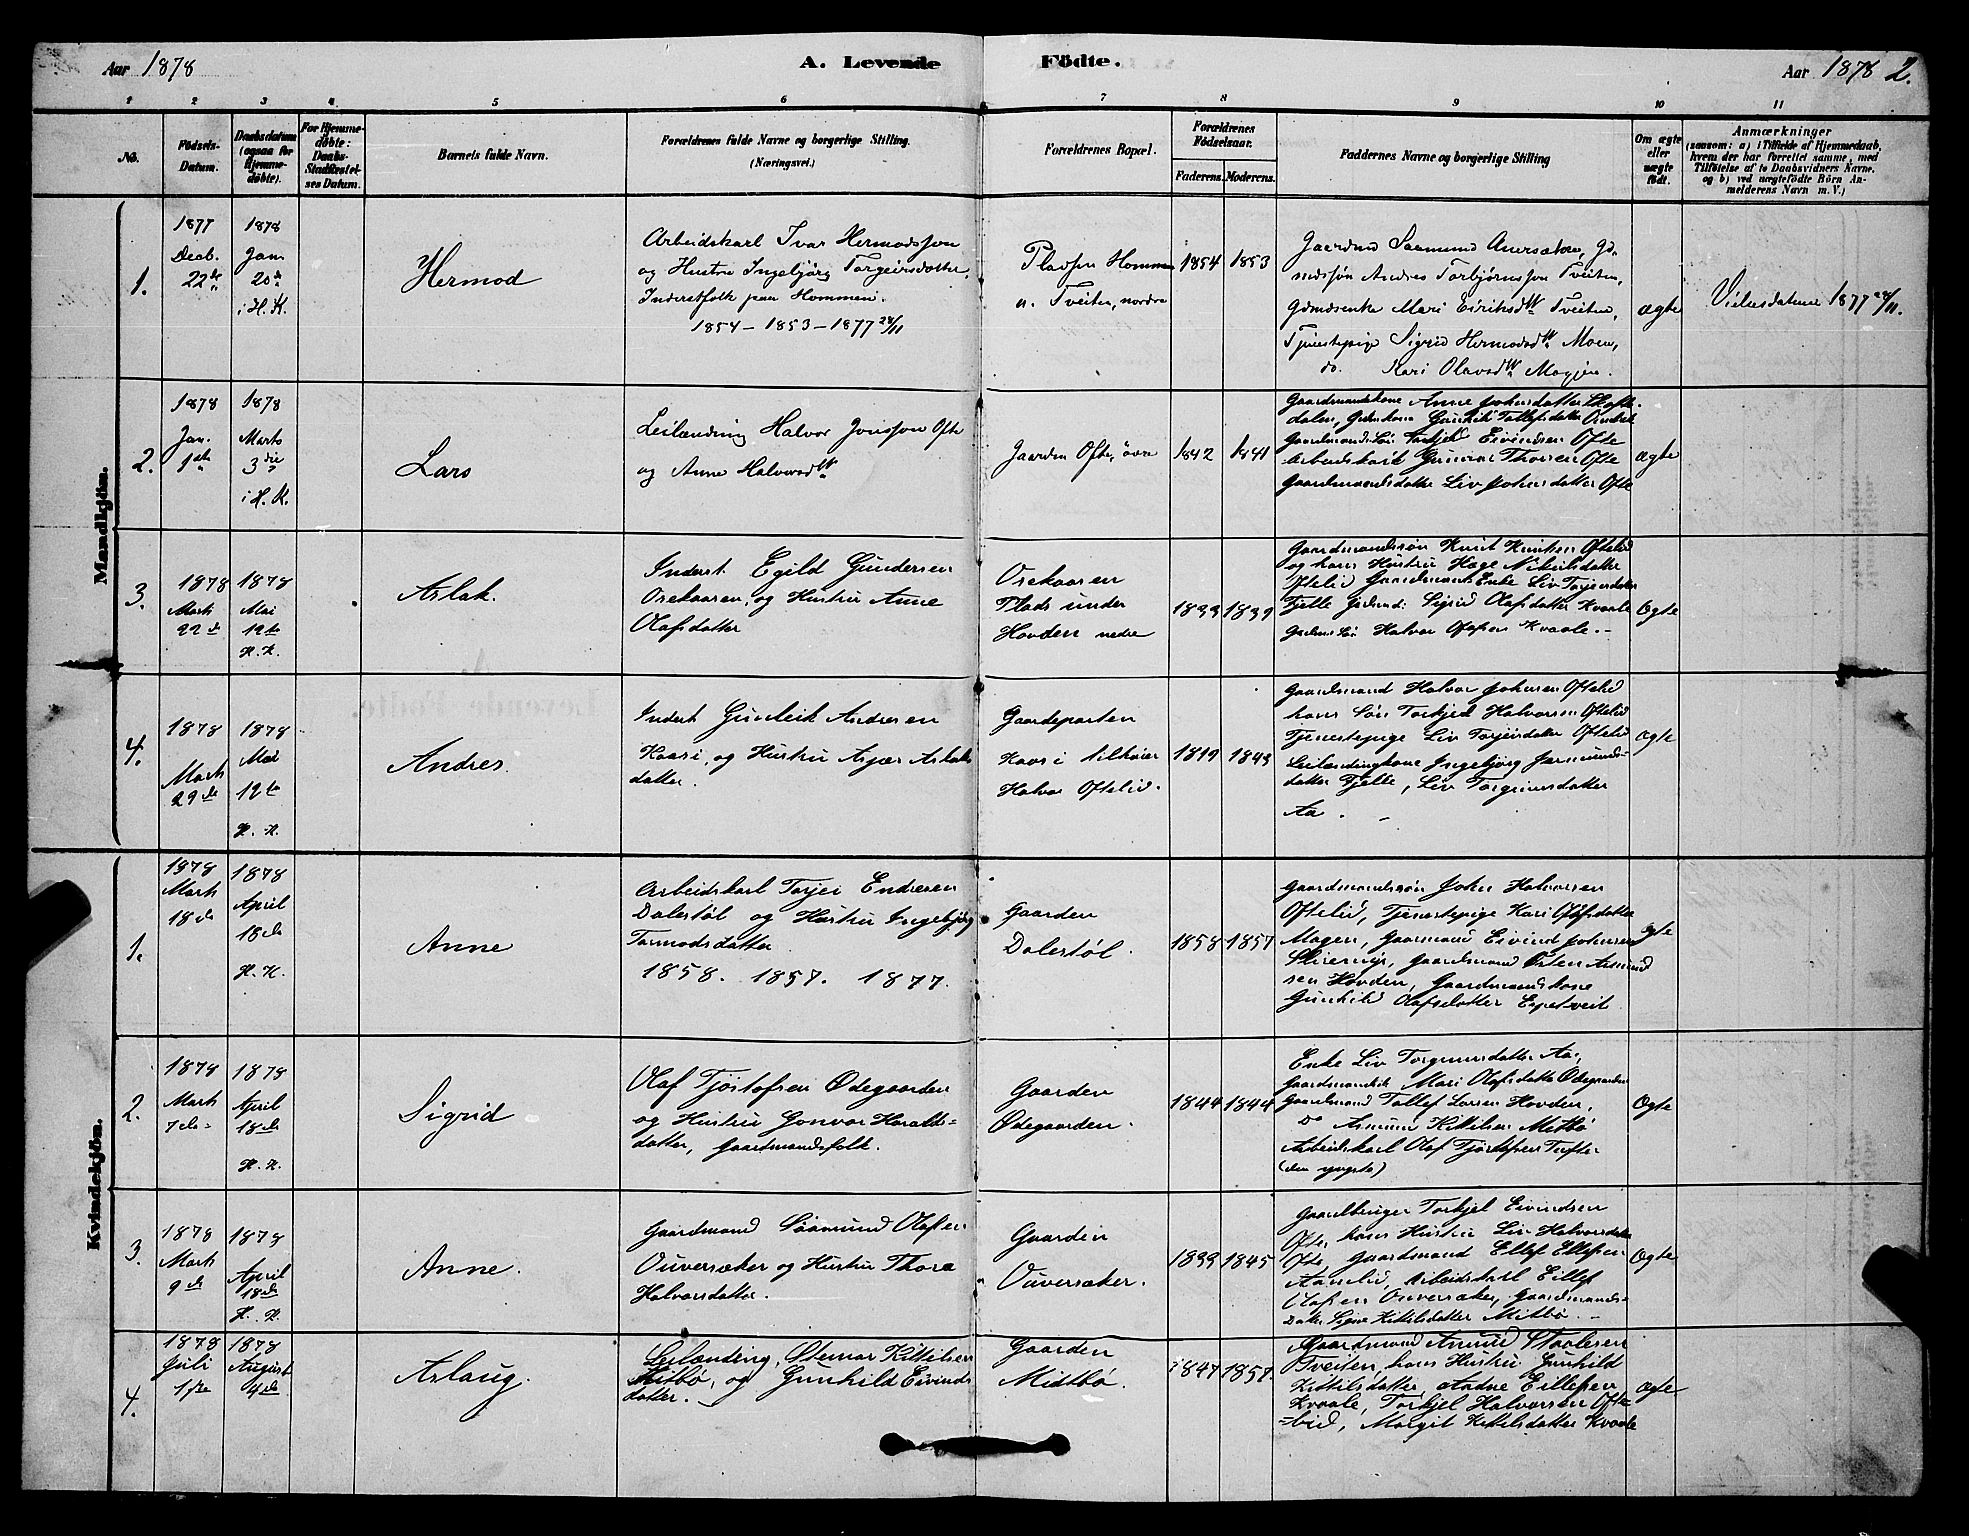 Aar 1878
A. Levende Födte.
Aar 1878 2.
1 2 3 4 5 6 7 8 9 10 11
No.
Födsels-
Datum.
Daabsdatum
(ogsaa for
Hjemme-
döbte).
For Hjemme-
döbte:
Daabs-
Stadfæstel-
ses Datum.
Barnets fulde Navn.
Forældrenes fulde Navne og borgerlige Stilling.
(Næringsvei.)
Forældrenes Bopæl.
Forældrenes
Födselsaar.
Faderens. Moderens.
Faddernes Navne og borgerlige Stilling
Om ægte
eller
uægte
födt.
Anmærkninger
(saasom: a) i Tilfælde af Hjemmedaab,
hvem der har forrettet samme, med
Tilföielse af to Daabsvidners Navne,
og b) ved uægtefödte Börn An-
melderens Navn m. V.)
Mandkjön.
1.
1877
Decb.
22de
1878
Jan.
20de
i H. K.
Hermod
Arbeidskarl Ivar Hermodssøn
og Hustru Ingebjørg Torgeirsdatter.
Inderstfolk paa Hommen.
1854 – 1853 – 1877 24/11
Pladsen Hommen
u. Tveiten, nordre
1854
1853
Gaardmd Saamund
Andres Torbjørnssøn Tveiten,
Mari Eiriksdtr Tveiten,
Tjenestepige Sigrid Hermodsdtr Moen,
do. Kari Olavsdtr Mogen.
ægte
Vielsesdatum 1877 24/11.
2.
1878
Jan.
1ste
1878
Marts
3die
i H. K.
Lars
Leilænding Halvor Jonssøn Ofte
og Anne Halvorsdtr
Gaarden Ofte, øvre
1842
1841
Gaardmandskone Anne Johnsdatter
dalen, Gunhild Tollefsdatter
Gaardmandssøn Torkjel Eivindsen Ofte
Arbeidskarl Gunnar Thorsen Ofte
Gaardmandsdatter Liv Johnsdatter Ofte
ægte
3.
1878
Marts
22de
1878
Mai
12te
H. K.
Aslak.
Inderst Egild Gundersen
Osekaasen, og Hustru Anne
Olafsdatter
Osekaasen
Plads under
Hovden nedre
1833
1839
Gaardmandssøn Knut Knutsen Oftelid
og hans Hustru Hage Nikulsdatter
Oftelid Gaardmands Enke Liv Torjersdatter
Fjelle Sigrid Olafsdatter Kvaale
Halvor Olafsen Kvaale. –
Ægte
4.
1878
Marts
29de
1878
Mai
12te
H. K.
Andres.
Inderst Gunleik Andresen
Kaasi, og Hustru Asjær Aslaks
datter.
Gaardeparten
Kaasi tilhører
Halvor Oftelid.
1819
1843
Gaardmand Halvor Johnsen Oftelid
hans Søn Torkjel Halvorsen Oftelid
Tjenestepige Liv Torjersdatter Oftelid
Leilændingkone Ingebjørg Jørmunds-
datter Fjelle, Liv Torgrimsdatter
Aa. –
Ægte
Kvindekjön.
1.
1878
Marts
18de
1878
April
18de
H. K.
Anne
Arbeidskarl Torjei Endresen
Dalestøl og Hustru Ingebjørg
Tarmodsdatter.
1858. 1857. 1877.
Gaarden
Dalestøl.
1858
1857
Gaardmandssøn John Halvorsen
Oftelid, Tjenestepige Kari Olafsdatter
Mogen, Gaardmand Eivind Johnsen
Gaardmand Østen Asmund
sen Hovden, Gaardmandskone
Gunhild Olafsdatter Espetveit.
Ægte
2.
1878
Marts
7de
1878
April
18de
H. K.
Sigrid
Olaf Tjøstofsen Ødegaarden
og Hustru Gonvor Haralds-
datter, Gaardmandsfolk.
Gaarden
Ødegaarden.
1844
1844
Enke Liv Torgrimsdatter Aa,
Mari Olafsdatter Ødegaarden
Gaardmand Tollef Larsen Hovden,
Do Asmund Kittilsen Mitbø
Arbeidskarl Olaf Tjøstofsen Tufte
(den yngste)
Ægte
3.
1878
Marts
9de
1878
April
18de
H. K.
Anne.
Gaardmand Saamund Olafsen
Uuversaker og Hustru Thora
Halvorsdatter.
Gaarden
Uuversaker.
1833
1845
Gaardbruger Torkjel Eivindsen
Ofte, hans Hustru Liv Halvorsdatter
Ofte, Gaardmand Ellef Ellefsen
Aamelid, Arbeidskarl Eillef
Olafsen Uuversaker, Gaardmands-
Datter Signe Kittilsdatter Mitbø. –
Ægte
4.
1878
Juli
1ste
1878
August
4de
Aslaug.
Leilænding, Steinar Kittilsen
Mitbø, og Gunhild Eivinds
datter.
Gaarden
Midtbø.
1847
1857.
Gaardmand Amund Staalesen
Tveiten, hans Hustru Gunhild
Kittilsdatter, Aadne Eillefsen
Kvaale, Torkjel Halvorsen Ofte-
lid, Margit Kittilsdatter Kvaale
Ægte